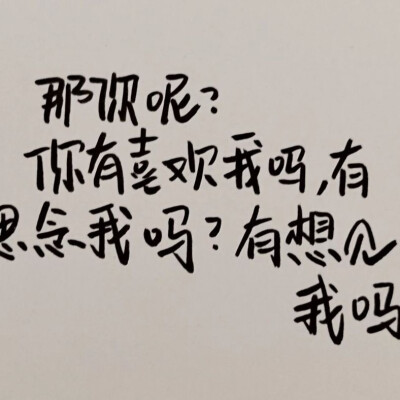 那你呢?
你有喜欢我吗,有
思念我吗?有想见
我吗